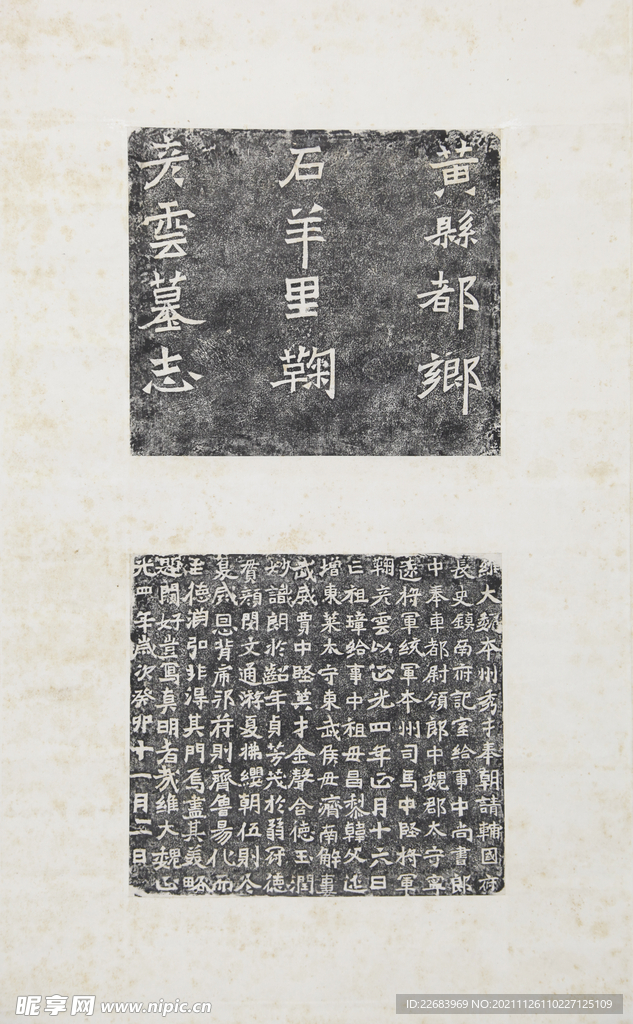 黃縣都鄉
石羊里鞠
彥雲墓志
維大魏本州秀才奉朝請輔國府
長史鎮南府記室給事中尚書郎
中奉車都尉領郎中魏郡太守寧
遠將軍統軍本州司馬中堅將軍
鞠彥雲以正光四年正月十六日
亡祖璋給事中祖母昌黎韓父延
增東萊太守東武侯母濟南解事
武威賈中堅英才金聲合德玉潤
妙識朗於齠年貞芳茂於弱冠德
賞顏閔文通游夏拂纓朝伍則冬
夏威恩背虎祁苻則齊魯易化而
玉德消引非淂其門焉盡其美略
題闕好豈寫真明者哉維大魏正
光四年歲次癸卯十一月二日
昵享网 www.nipic.cn
ID:22683969 NO:20211126110227125109